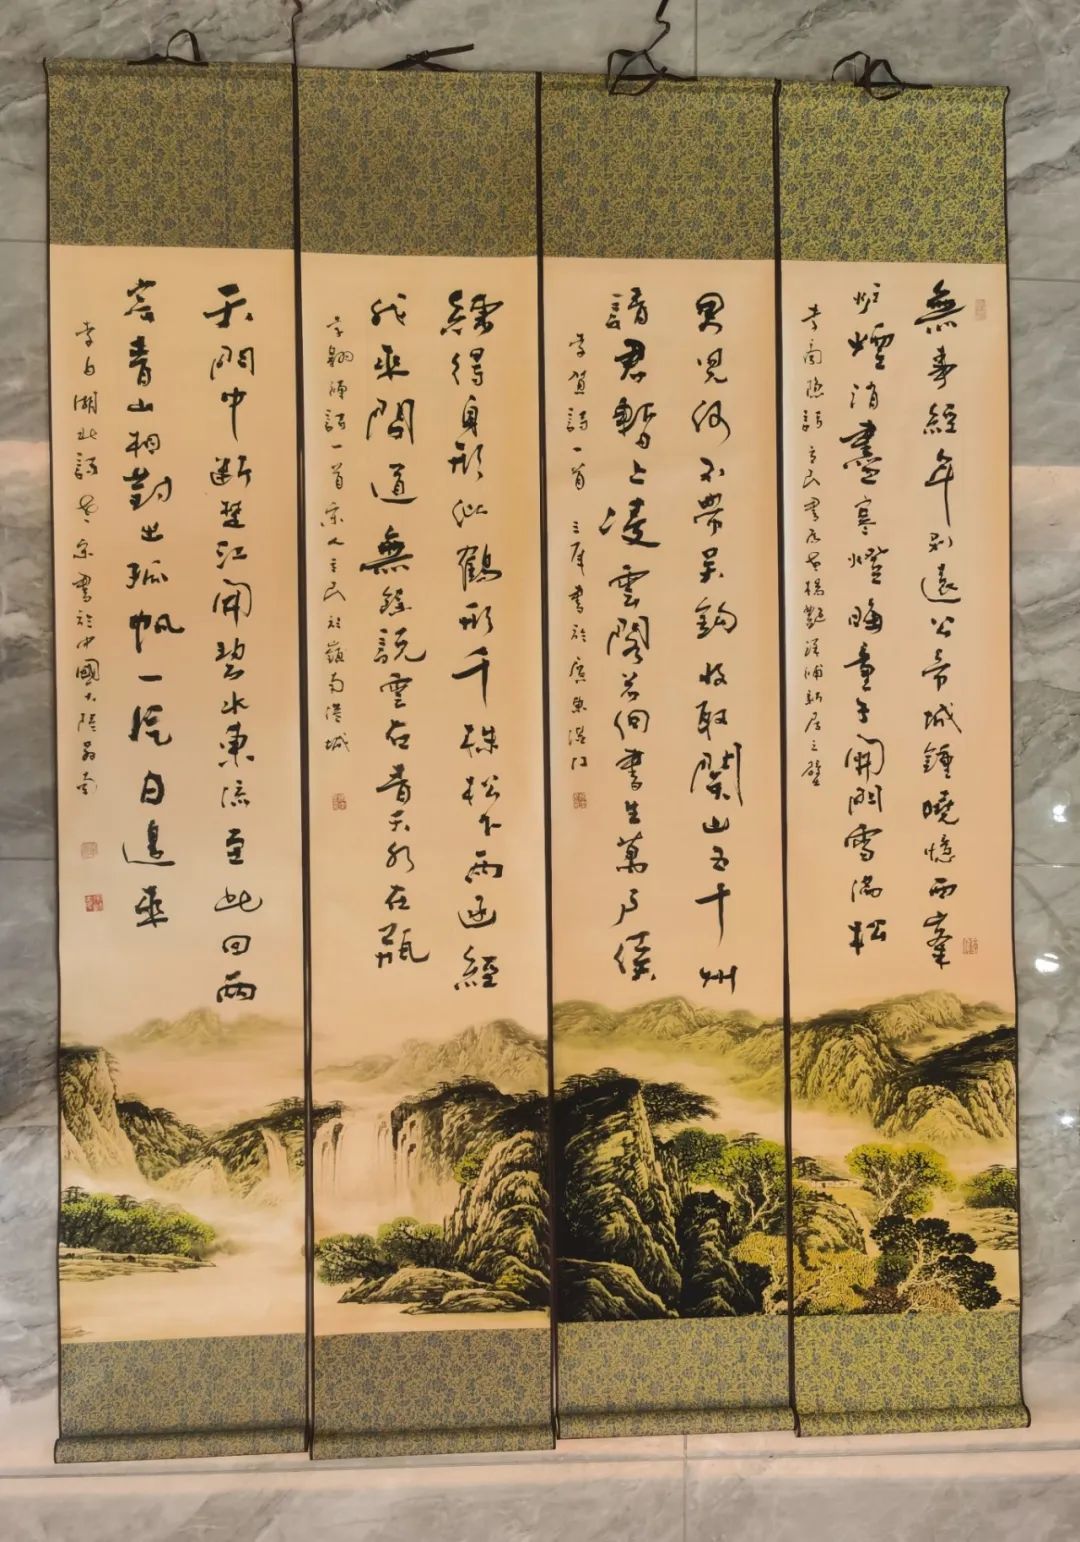 無事經年別遠公帝城鍾曉憶西峯
炉煙消盡寒燈晦童子開門雪滿松
李商隐詩 立民書於 楊艷漳浦新居之壁
男兒何不帶吳鈎收取關山五十州
請君暫上凌雲閣若個書生萬户侯
李賀詩一首 書於廣東
練得身形似鶴形千株松下兩函經
我來問道無餘說雲在青天水在瓶
李翱禪詩一首 立民於嶺南港城
天門中斷楚江開碧水東流至此回兩
岸青山相對出孤帆一片日邊來
李白湖北詩 書於中國大陸